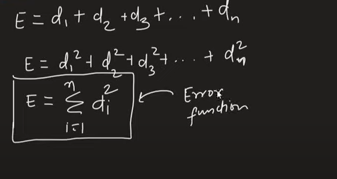 E = d₁ + d₂ + d₃ + . . . + dₙ
E = d₁² + d₂² + d₃² + . . . + dₙ²
E = ∑ᵢ₌₁ⁿ dᵢ² ← Error function